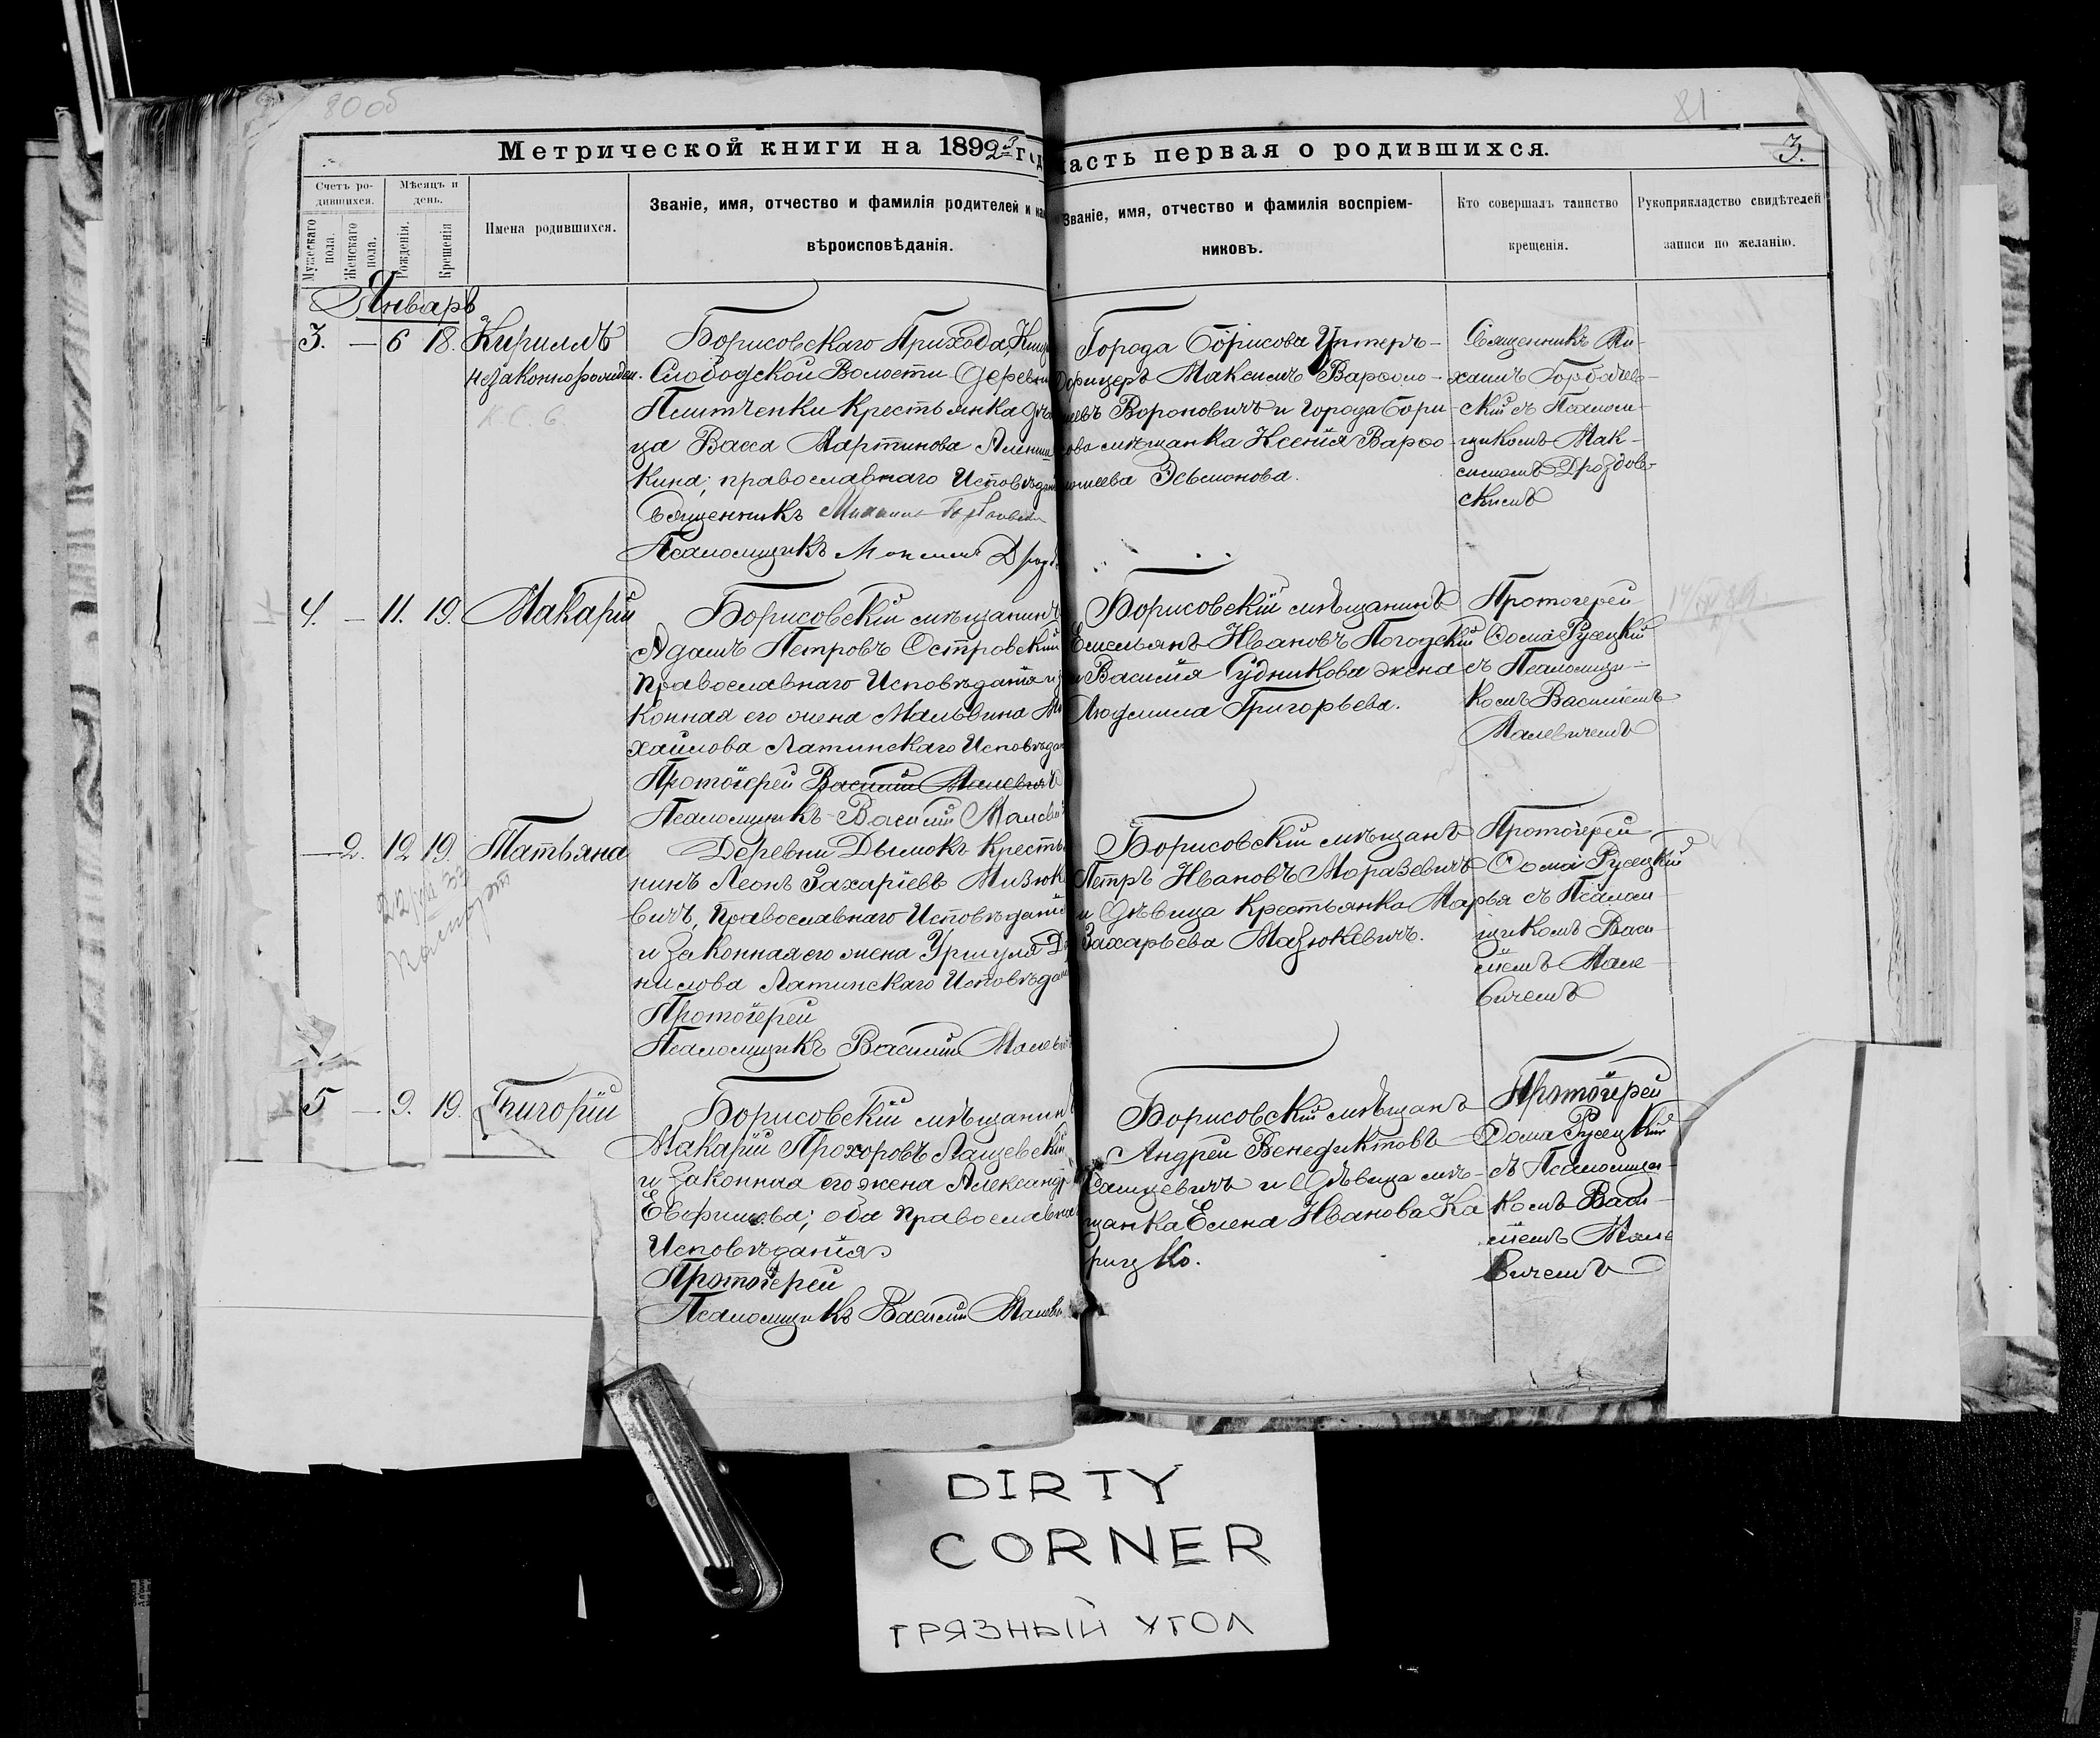 80об
81
Метрической книги на 1892 го
часть первая о родившихся.
3.
Счетъ ро-
дившихся.
Мѣсяцъ и
день.
Мужескаго
пола.
Женскаго
пола.
Рожденія.
Крещенія
Имена родившихся.
Званіе, имя, отчество и фамилія родителей и
вѣроисповѣданія.
Званіе, имя, отчество и фамилія воспріем-
никовъ.
Кто совершалъ таинство
крещенія.
Рукоприкладство свидѣтелей
записи по желанію.
Январь
3. — 6 18. Кириллъ
незаконнорожден.
Борисовскаго Прихода,
Слободской Волости Деревни
Пчитченки крестьянка
ца Васса Мартинова
кина; православнаго Исповѣдан
Священникъ
Псаломщикъ
Города Борисова Унтеръ-
Офицеръ Максимъ Варѳоло-
меевъ Вороновичъ и города Бори
сова мѣщанка Ксенія Варѳо
ломеева Эсьмонова.
Священникъ Ми-
хаилъ Горбачев-
скій съ Псалом-
щикомъ Мак-
симомъ Дроздов-
скимъ
4. — 11. 19. Макарій
Борисовскій мѣщанинъ
Адамъ Петровъ Островскій
Православнаго Исповѣданія и
конная его жена Мальвина Ми
хайлова Латинскаго Исповѣдан
Протоіерей Василій Малевичъ
Псаломщикъ Василій Малеви
Борисовскій мѣщанинъ
Емельянъ Ивановъ Погодскій
и Василія Судникова жена
Людмила Григорьева.
Протоіерей
Ѳома Русецкій
съ Псаломщи-
комъ Василіемъ
Малевичемъ
— 2. 12 19. Татьяна
паспорт
Деревни Дымокъ Кресть
нинъ Леонъ Захаріевъ Мизюк
вичъ, Православнаго Исповѣданія
и законная его жена Уршуля Д
нилова Латинскаго Исповѣдан
Протоіерей
Псаломщикъ Василій Малеви
Борисовскій мѣщанъ
Петръ Ивановъ Моразевичъ
и дѣвица крестьянка Марья
Захарьева Мазюкевичъ.
Протоіерей
Ѳома Русецкій
съ Псалом
щикомъ Васи
ліемъ Мале
вичемъ
5 — 9. 19. Григорій
Борисовскій мѣщанинъ
Макарій Прохоровъ Лащевскій
и законная его жена Александр
Евфимова; оба Православна
Исповѣданія
Протоіерей
Псаломщикъ Василій Малеви
Борисовскій мѣщанъ
Андрей Венедиктовъ
и дѣвица мѣ-
щанка Елена Иванова Ка
рицко.
Протоіерей
Ѳома Русецкій
съ Псаломщи-
комъ Васи-
ліемъ Мале
вичемъ
DIRTY
CORNER
ГРЯЗНЫЙ УГОЛ